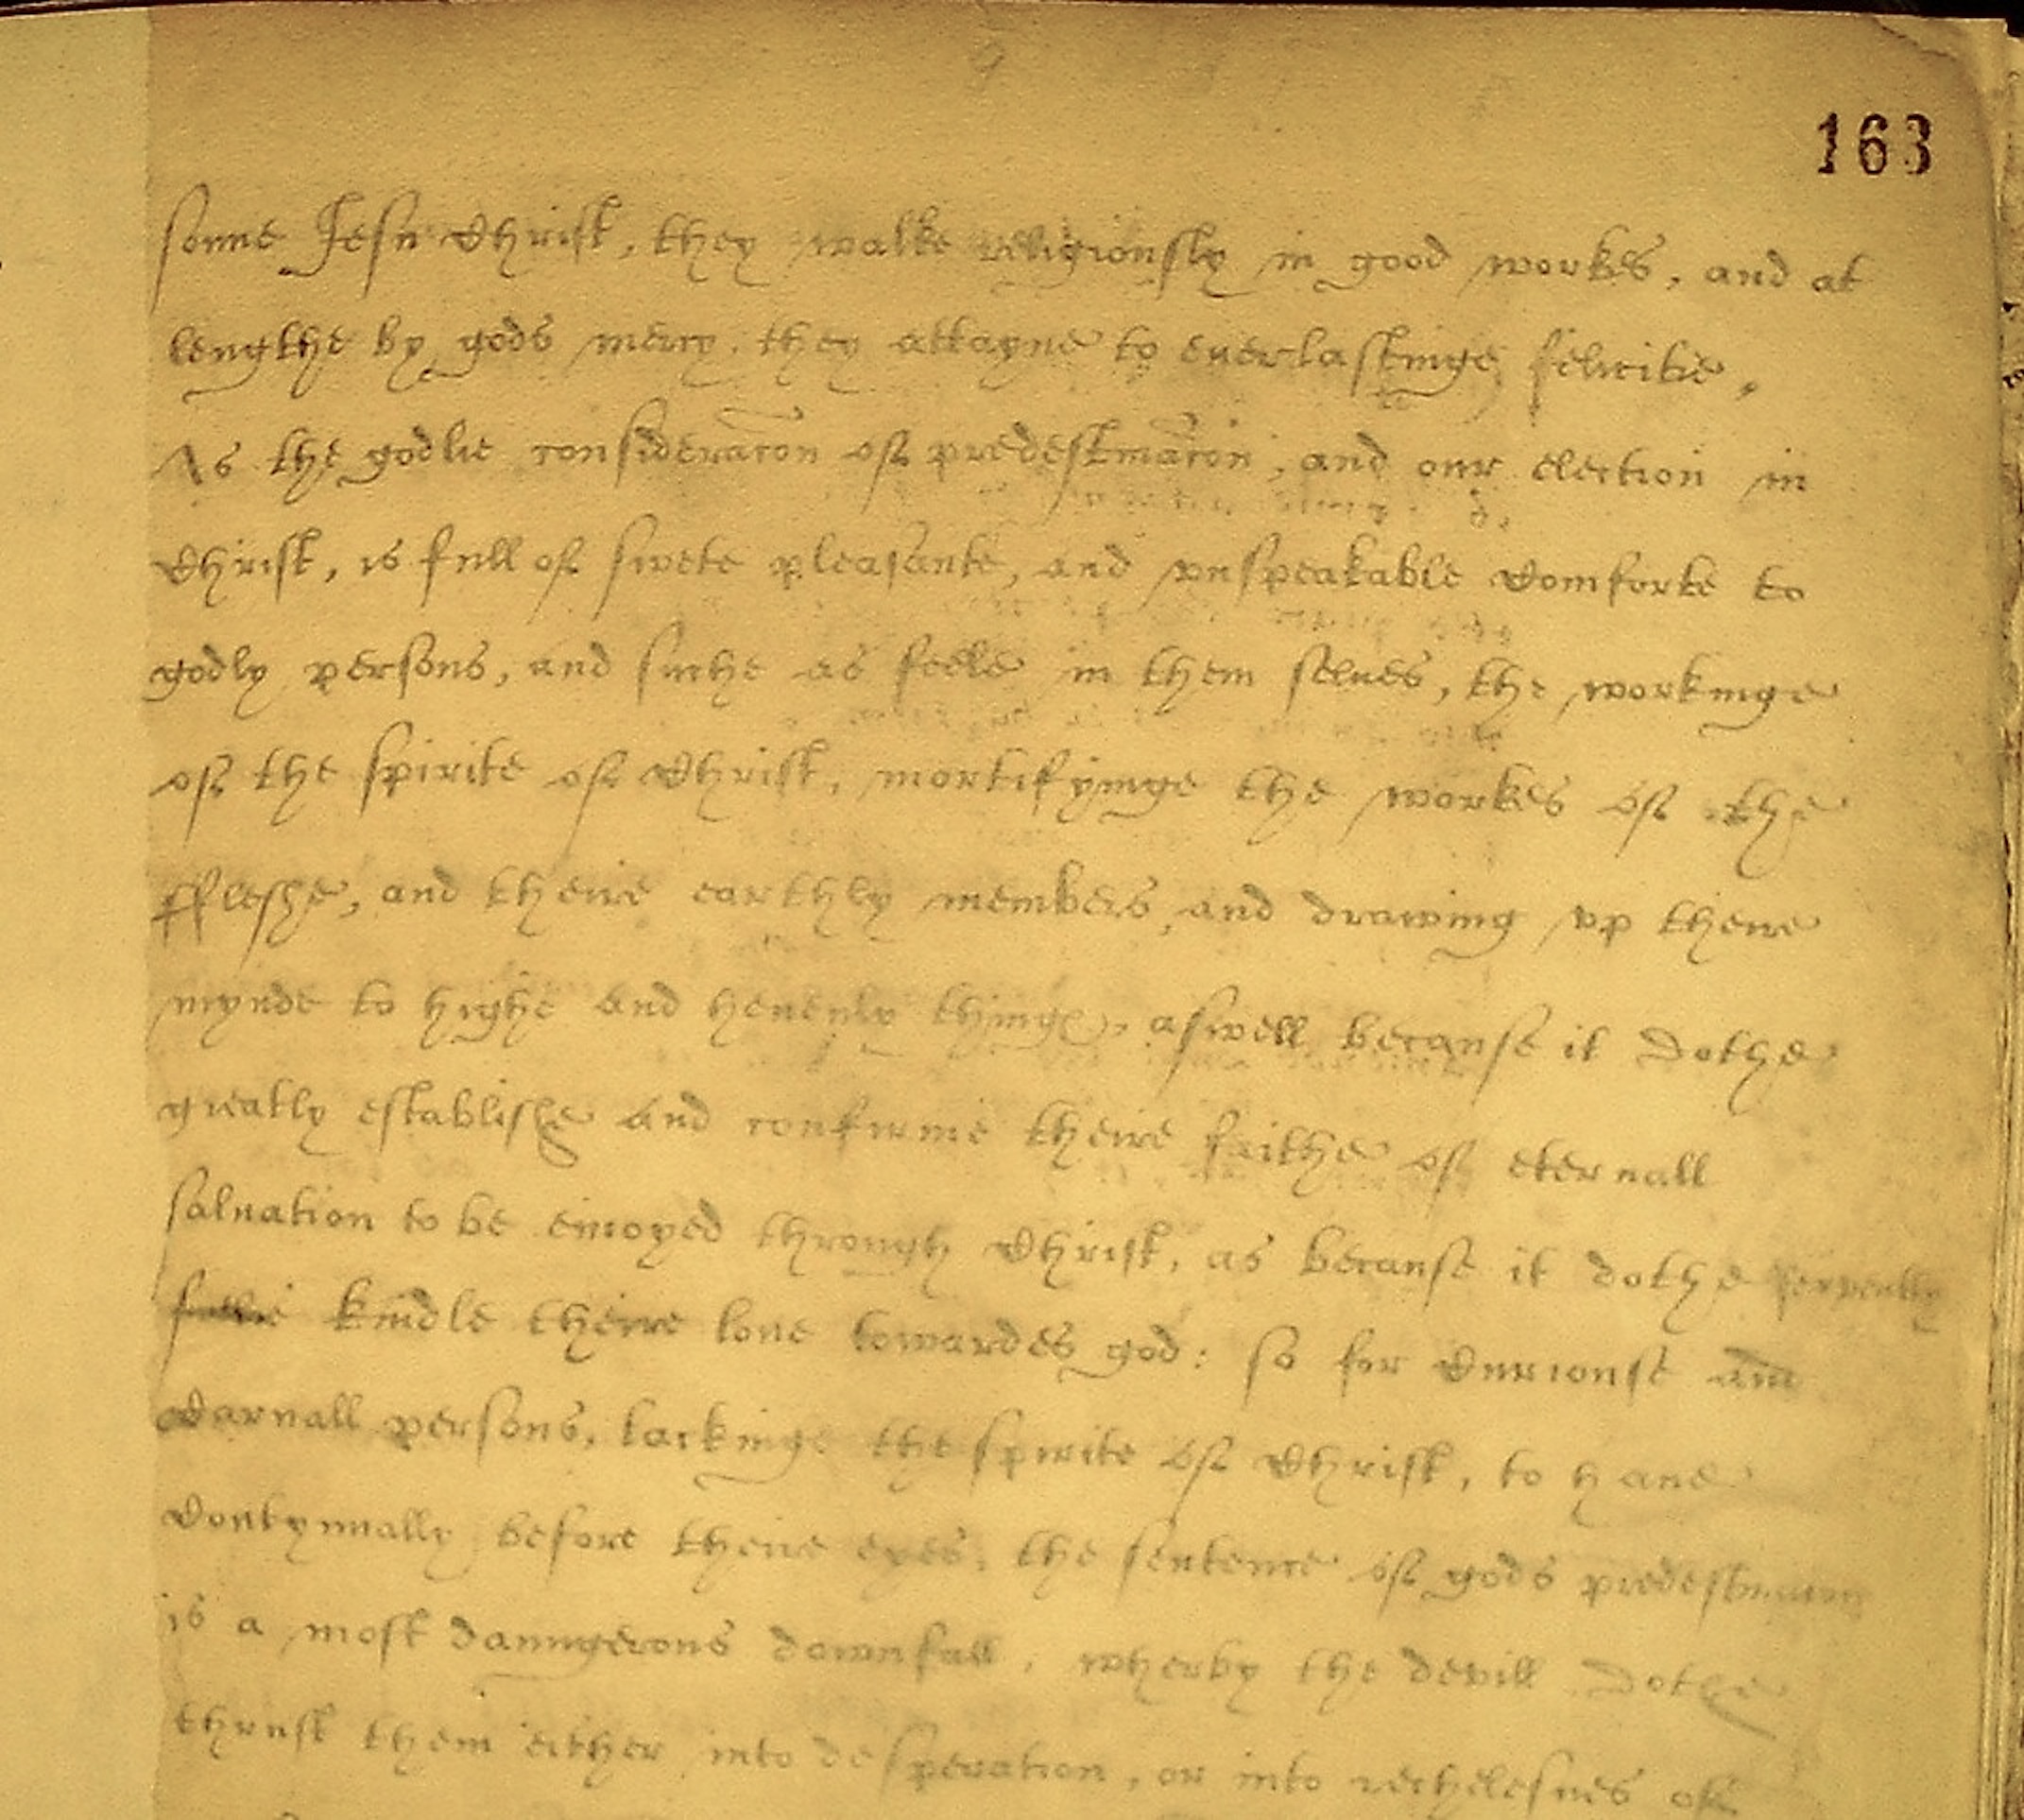 163
sonne Jesu Christ, they walke religiously in good workes, and at
lengthe by gods mercy they attayne to euerlastinge felicitie,
As the godlie consideracon of predestinacon, and our election in
Christ, is full of swete pleasante, and vnspeakable Comforte to
godly persons, and suche as feele in them selues, the workinge
of the spirite of Christ, mortifyinge the workes of the
ffleshe, and theire earthly members, and drawing vp theire
mynde to highe and heuenly thinges, aswell because it dothe
greatly establishe and confirme theire faithe of eternall
saluation to be enioyed through Christ, as because it dothe fervently
kindle theire loue towardes god: so for Curiouse and
Carnall persons, lackinge the spirite of Christ, to haue
Contynually before theire eyes, the sentence of gods
is a most daungerous downfall, wherby the devill dothe
thrust them either into desperation, or into rechelesnes of